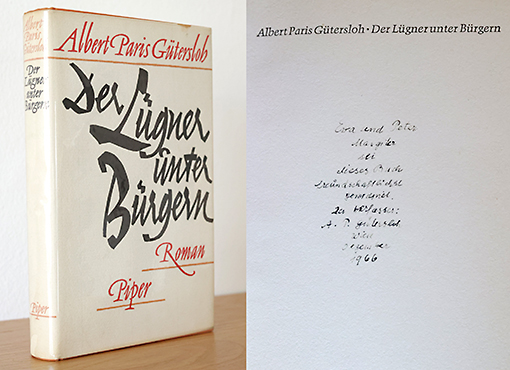 Albert
Paris
Gütersloh
Der
Lügner
unter
Bürgern
Piper
Albert Paris Gütersloh
Der
Lügner
unter
Bürgern
Roman
Piper
Albert Paris Gütersloh · Der Lügner unter Bürgern
Eva und Peter
sei
dieses Buch
freundschaftlichst
gewidmet.
Der Verfasser:
A. P. Gütersloh
Wien
Dezember
1966